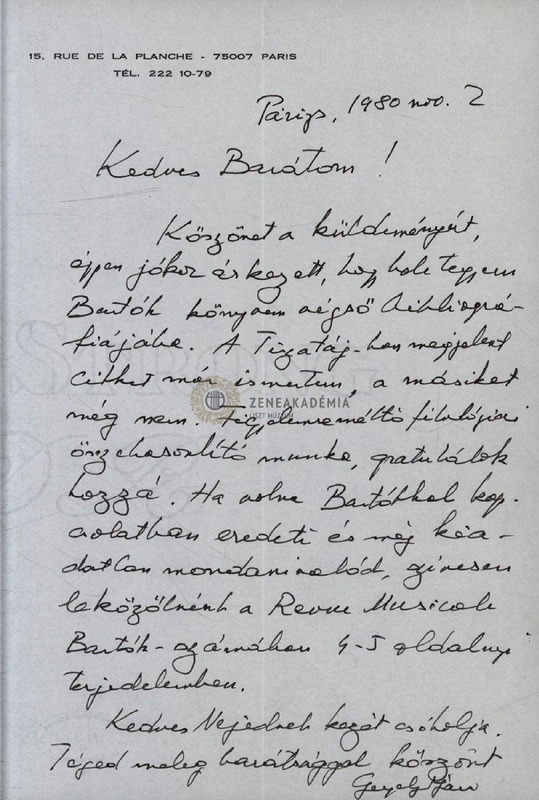 15, RUE DE LA PLANCHE - 75007 PARIS
TÉL. 222 10-79
Párizs, 1980 nov. 2
Kedves Barátom!
Köszönet a küldeményért,
éppen jókor érkezett, hogy bele tegyem
Bartók könyvem végső bibliográ-
fiájába. A Tiszatáj-ban megjelent
cikket már ismertem, a másikat
még nem. Figyelemreméltó filológiai
összehasonlító munka, gratulálok
hozzá. Ha volna Bartókkal kap-
csolatban eredeti és még kia-
datlan mondanivalód, szívesen
leközölnénk a Revue Musicale
Bartók-számában 4-5 oldalnyi
terjedelemben.
Kedves Nejednek kezét csókolja.
Téged meleg barátsággal köszönt
Gergely
ZENEAKADÉMIA
LISZT MÚZEUM